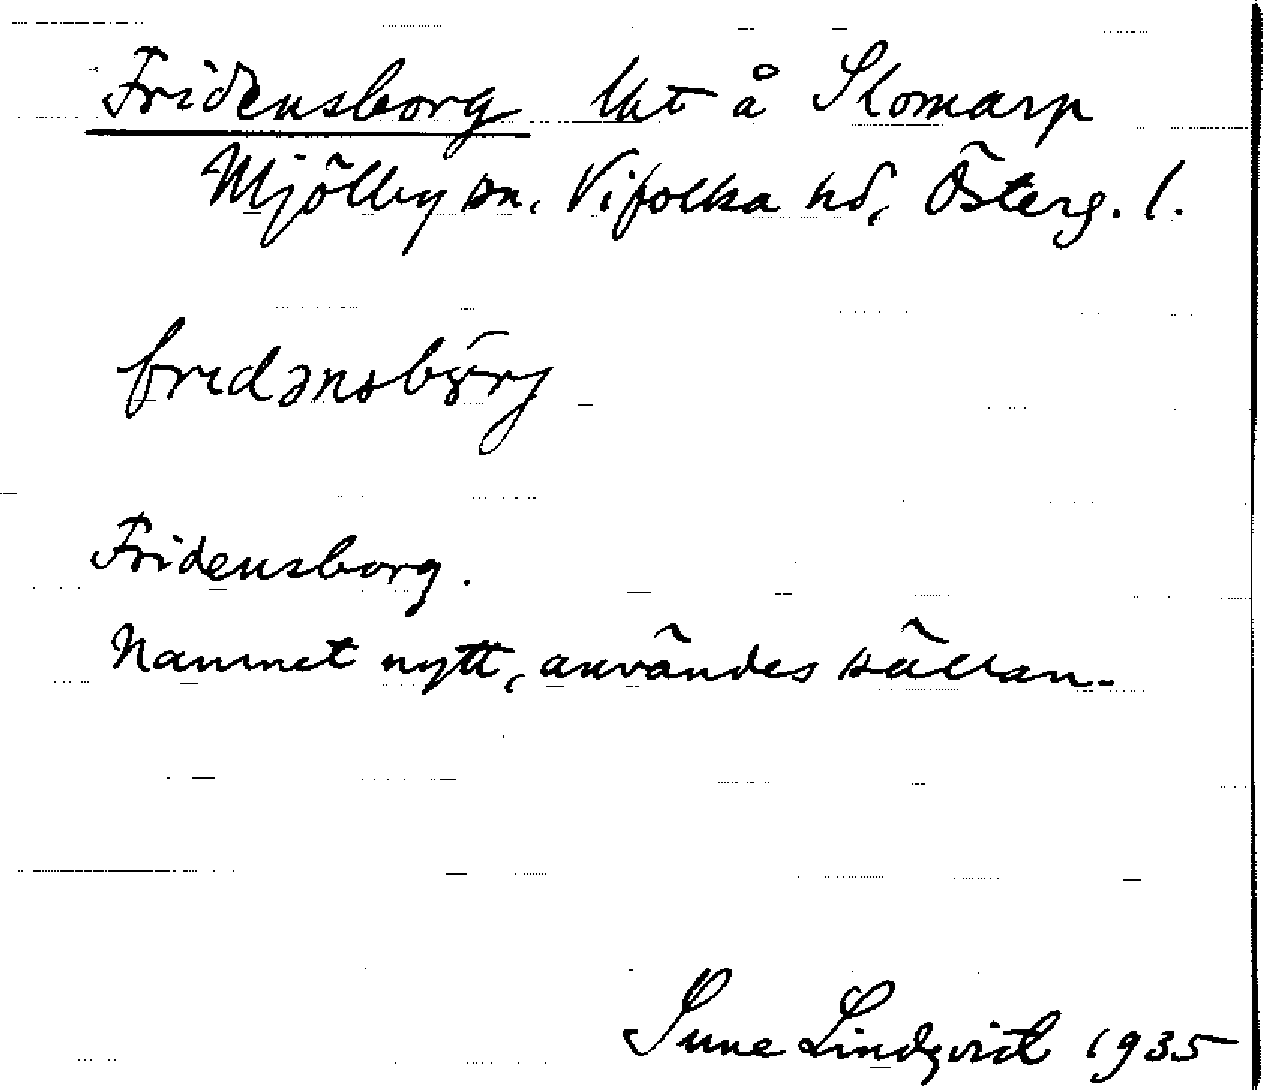 Fridensborg lht å Skomarp
Mjölby sn, Vifolka hd, Österg. l.
fridənsbɷrj
Fridensborg.
Namnet nytt, användes sällan.
Sune Lindqvist 1935